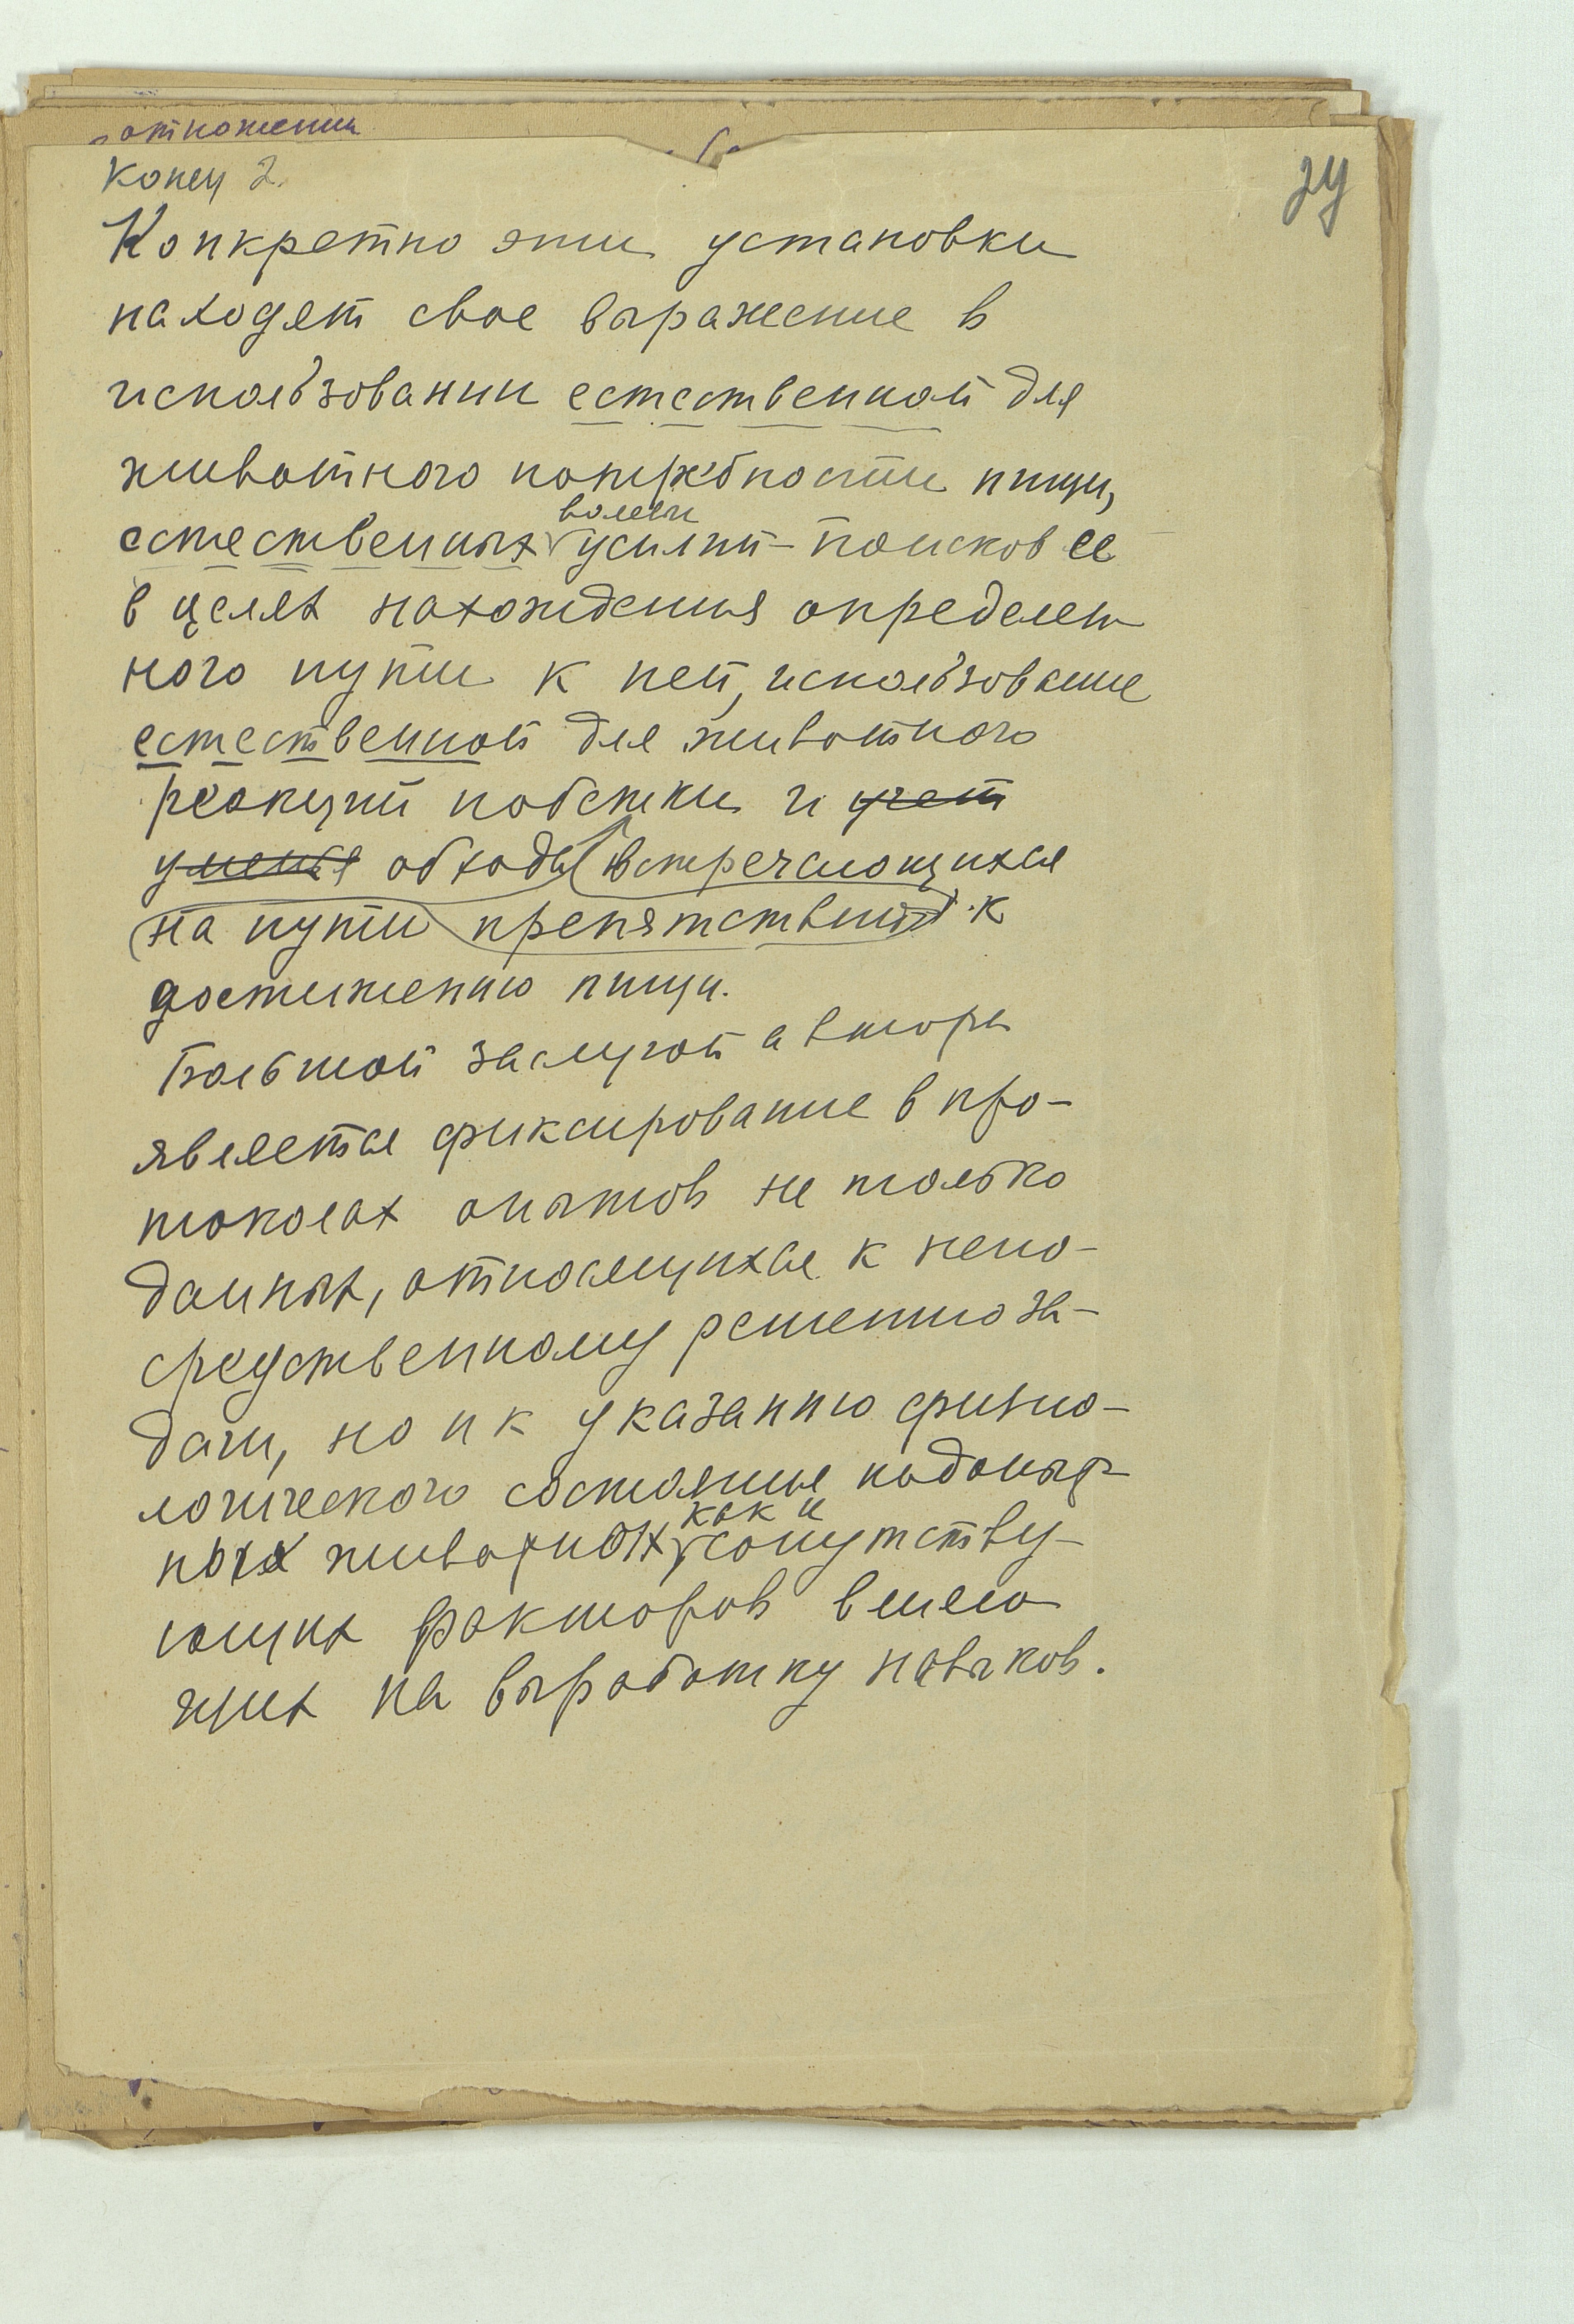 отношения
Конец 2.
24
Конкретно эти установки
находят свое выражение в
использовании естественной для
животного потребности пищи,
волевы
естественных усилий – поисков ее
в целях нахождения определен
ного пути к ней, использование
естественной для животного
реакции побежки и учет
уменья обходы встречающихся
на пути препятствий к
достижению пищи.
Большой заслугой автора
является фиксирование в про-
токолах опытов не только
данных, относящихся к непо-
средственному решению за-
дачи, но и к указанию физио-
логического состояния подопыт-
как и
ных животных, сопутству-
ющих факторов влияю
щих на выработку навыков.